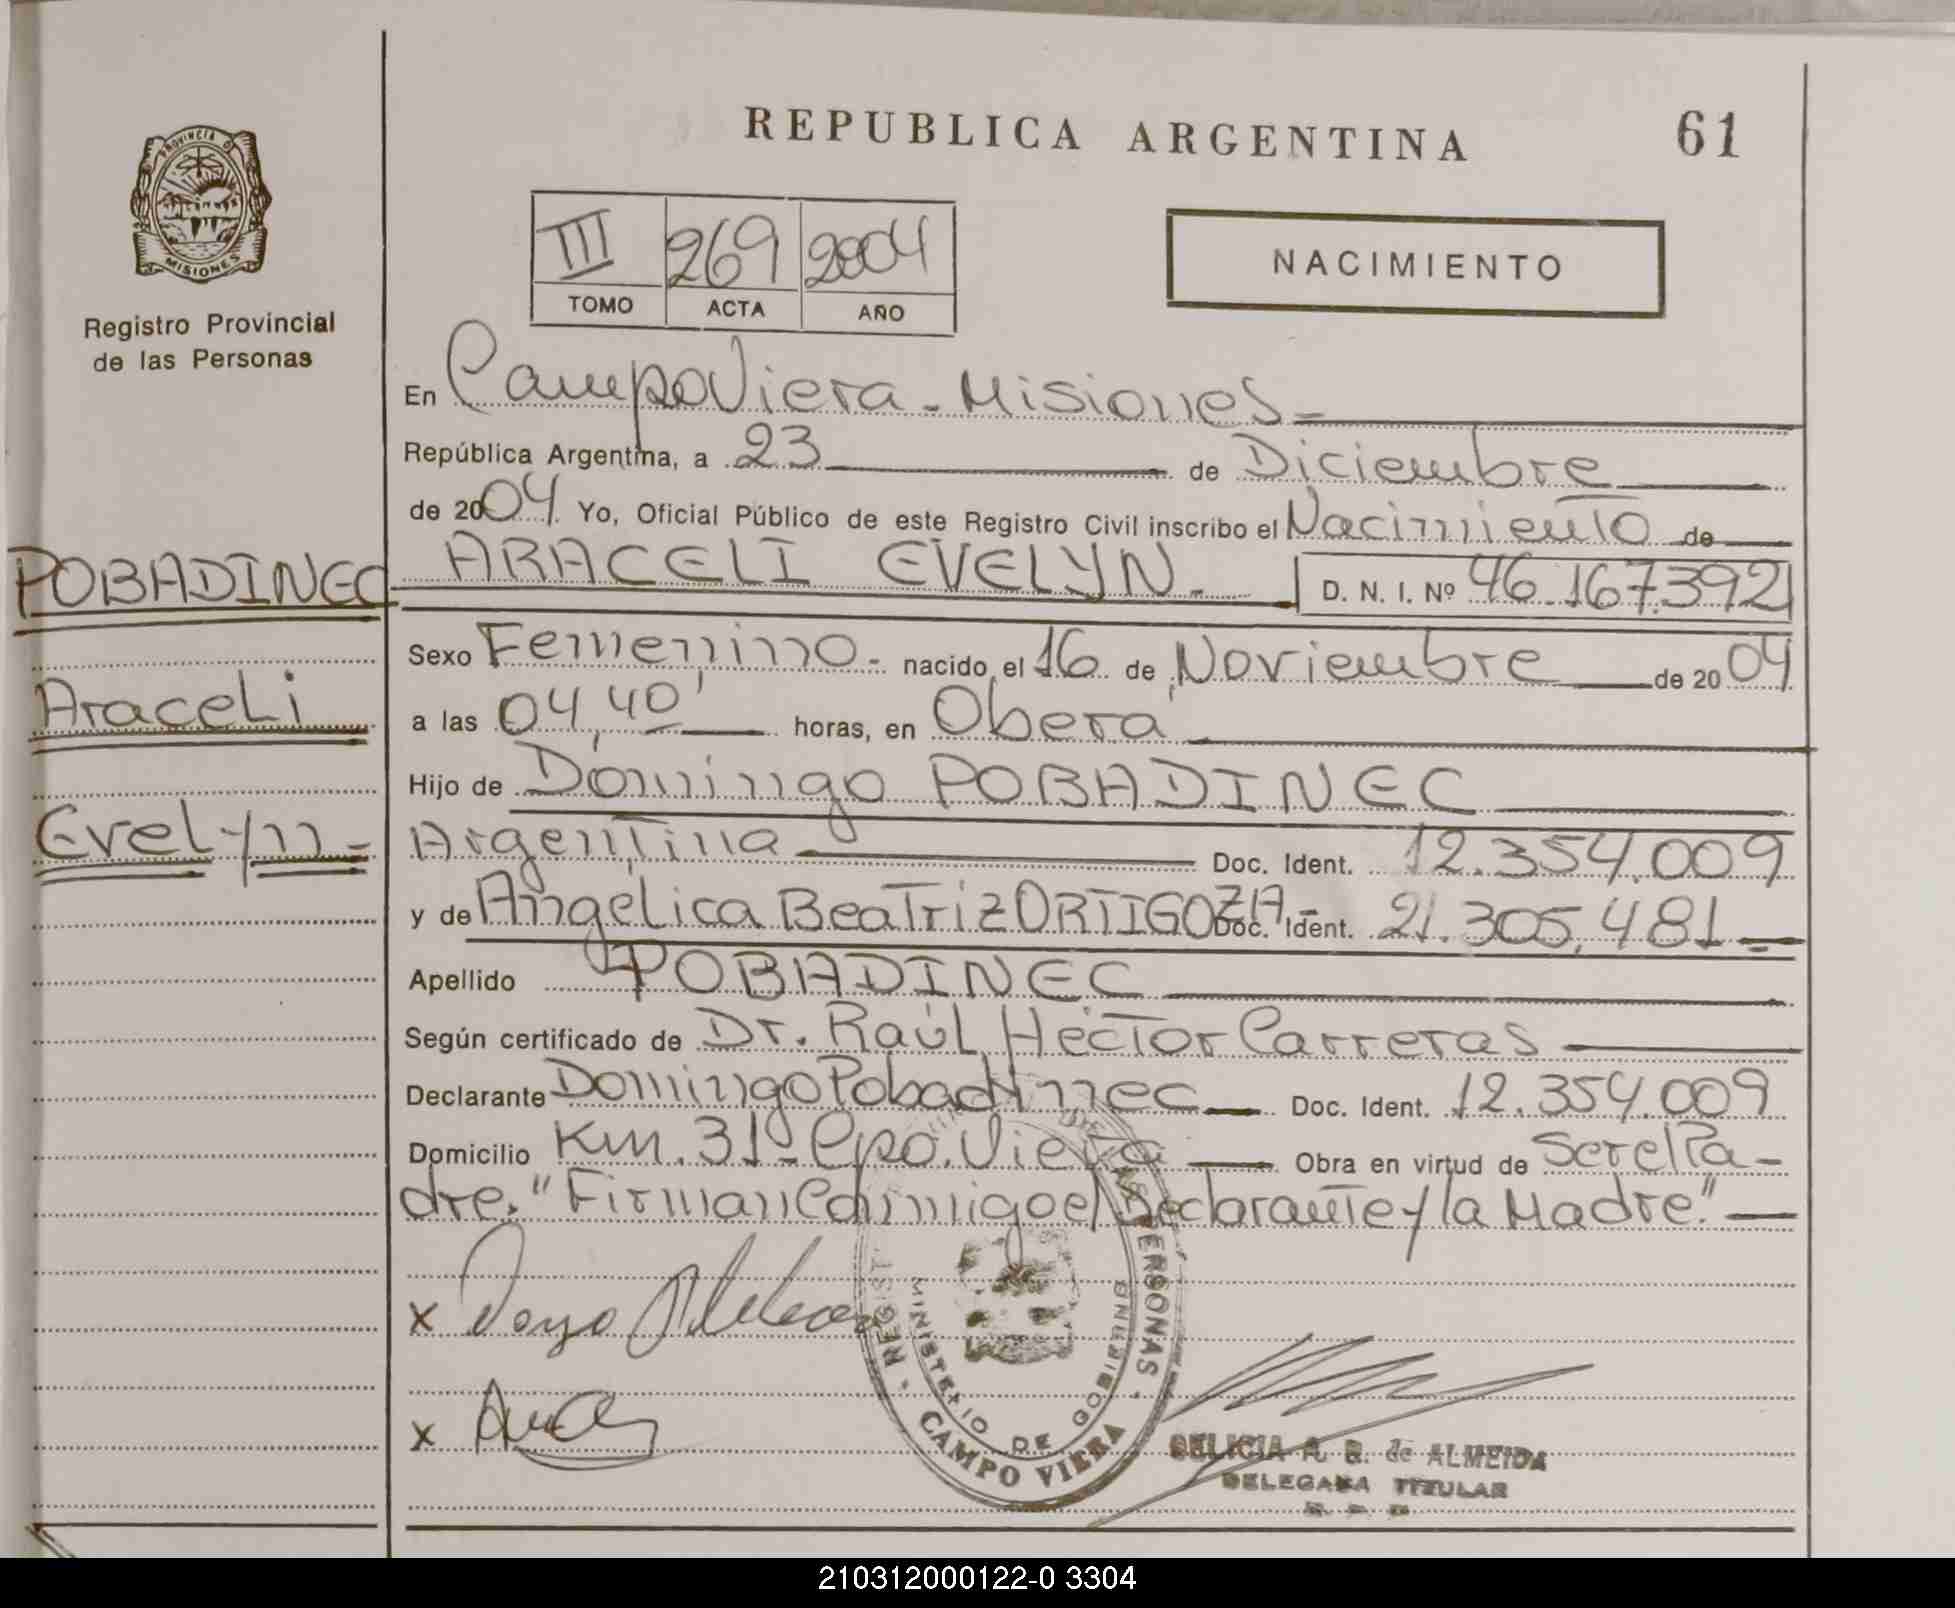 REPUBLICA ARGENTINA
61
PROVINCIA D
MISIONES
Registro Provincial
de las Personas
III 269 2004
TOMO ACTA AÑO
NACIMIENTO
En Campo Viera - Misiones -
República Argentina, a 23 de Diciembre
de 2004 Yo, Oficial Público de este Registro Civil inscribo el Nacimiento de
POBADINEC
ARACELI EVELYN. D. N. I. Nº 46.167.392
Araceli
Evelyn -
Sexo Femenino - nacido el 16 de Noviembre de 2004
a las 04,40' horas, en Oberá
Hijo de Domingo POBADINEC
Argentina Doc. Ident. 12.354.009
y de Angélica Beatriz ORTIGOZA - Doc. Ident. 21.305.481
Apellido POBADINEC
Según certificado de Dr. Raúl Héctor Carreras
Declarante Domingo Pobadinec Doc. Ident. 12.354.009
Domicilio Km. 31 - Cpo. Viera Obra en virtud de ser el Pa-
dre. "Firman Conmigo el Declarante y la Madre"
x
x
PERSONAS
MINISTERIO DE GOBIERNO
CAMPO VIERA
DELICIA A. B. de ALMEIDA
DELEGADA TITULAR
210312000122-0 3304